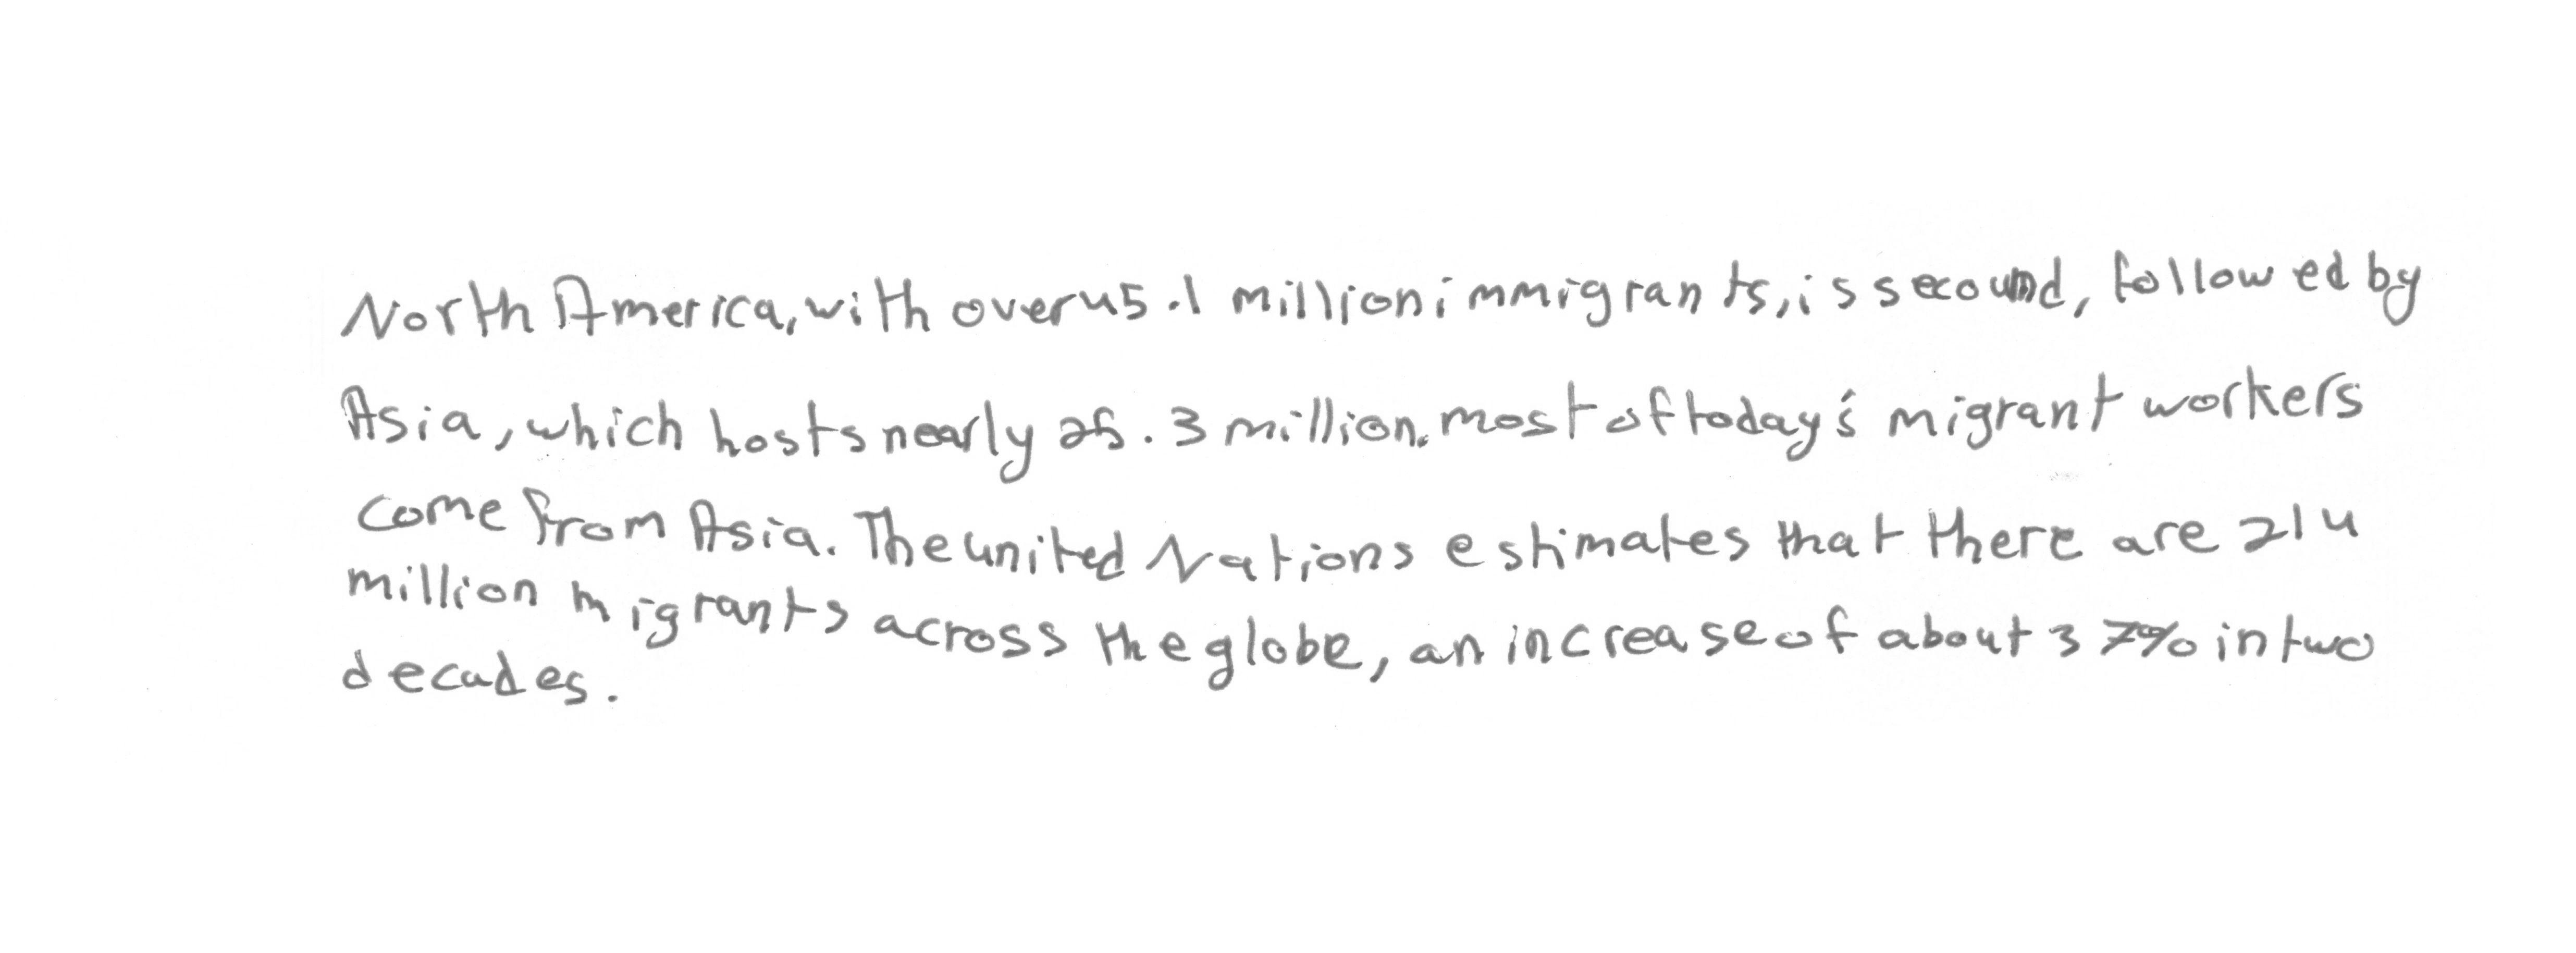 North America, with over 45.1 million immigrants, is secound, followed by
Asia, which hosts nearly 25.3 million. most of today's migrant workers
come from Asia. The united Nations estimates that there are 214
million migrants across the globe, an increase of about 37% in two
decades.